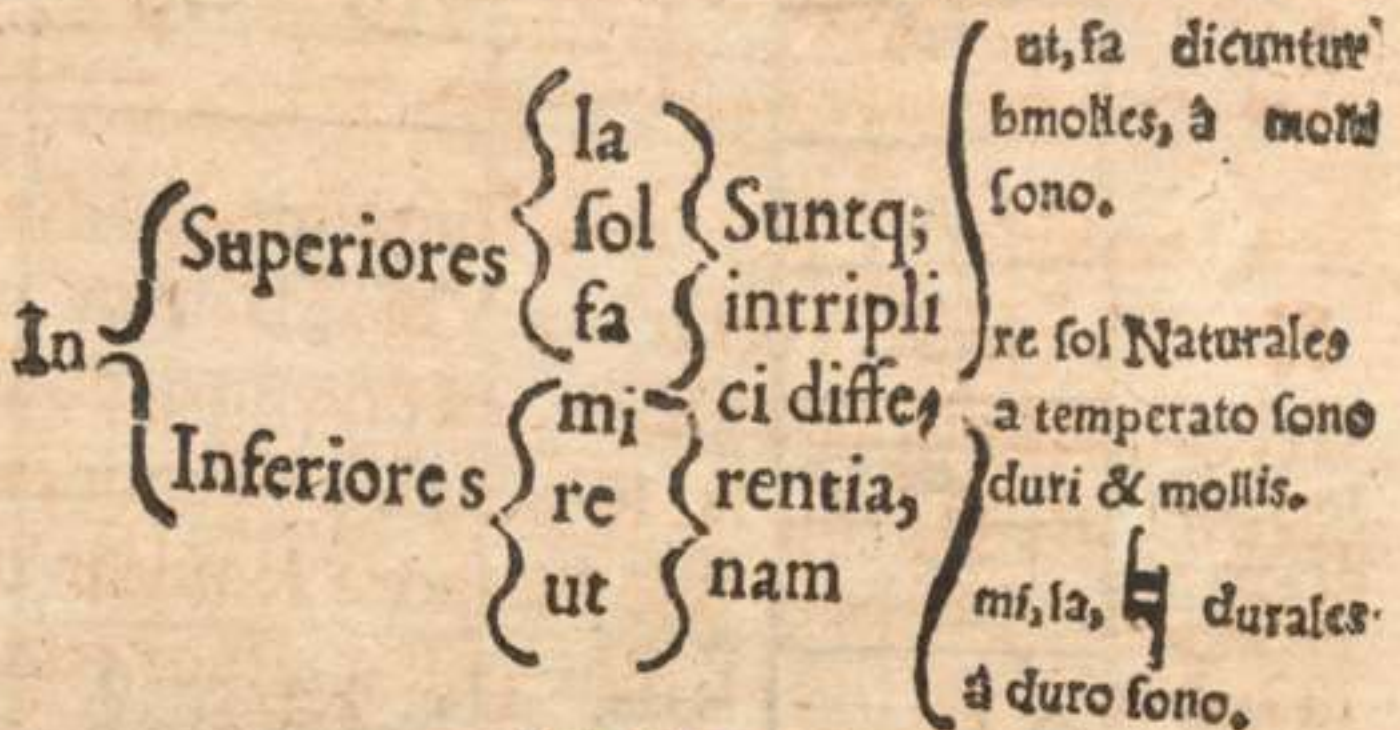 In
Superiores
la
ſol
fa
Inferiores
mi
re
ut
Suntq;
intripli
ci diffe,
rentia,
nam
ut, fa dicuntur
bmolles, à molli
ſono.
re ſol Naturales
a temperato ſono
duri & mollis.
mi, la, ♮ durales.
â duro ſono.